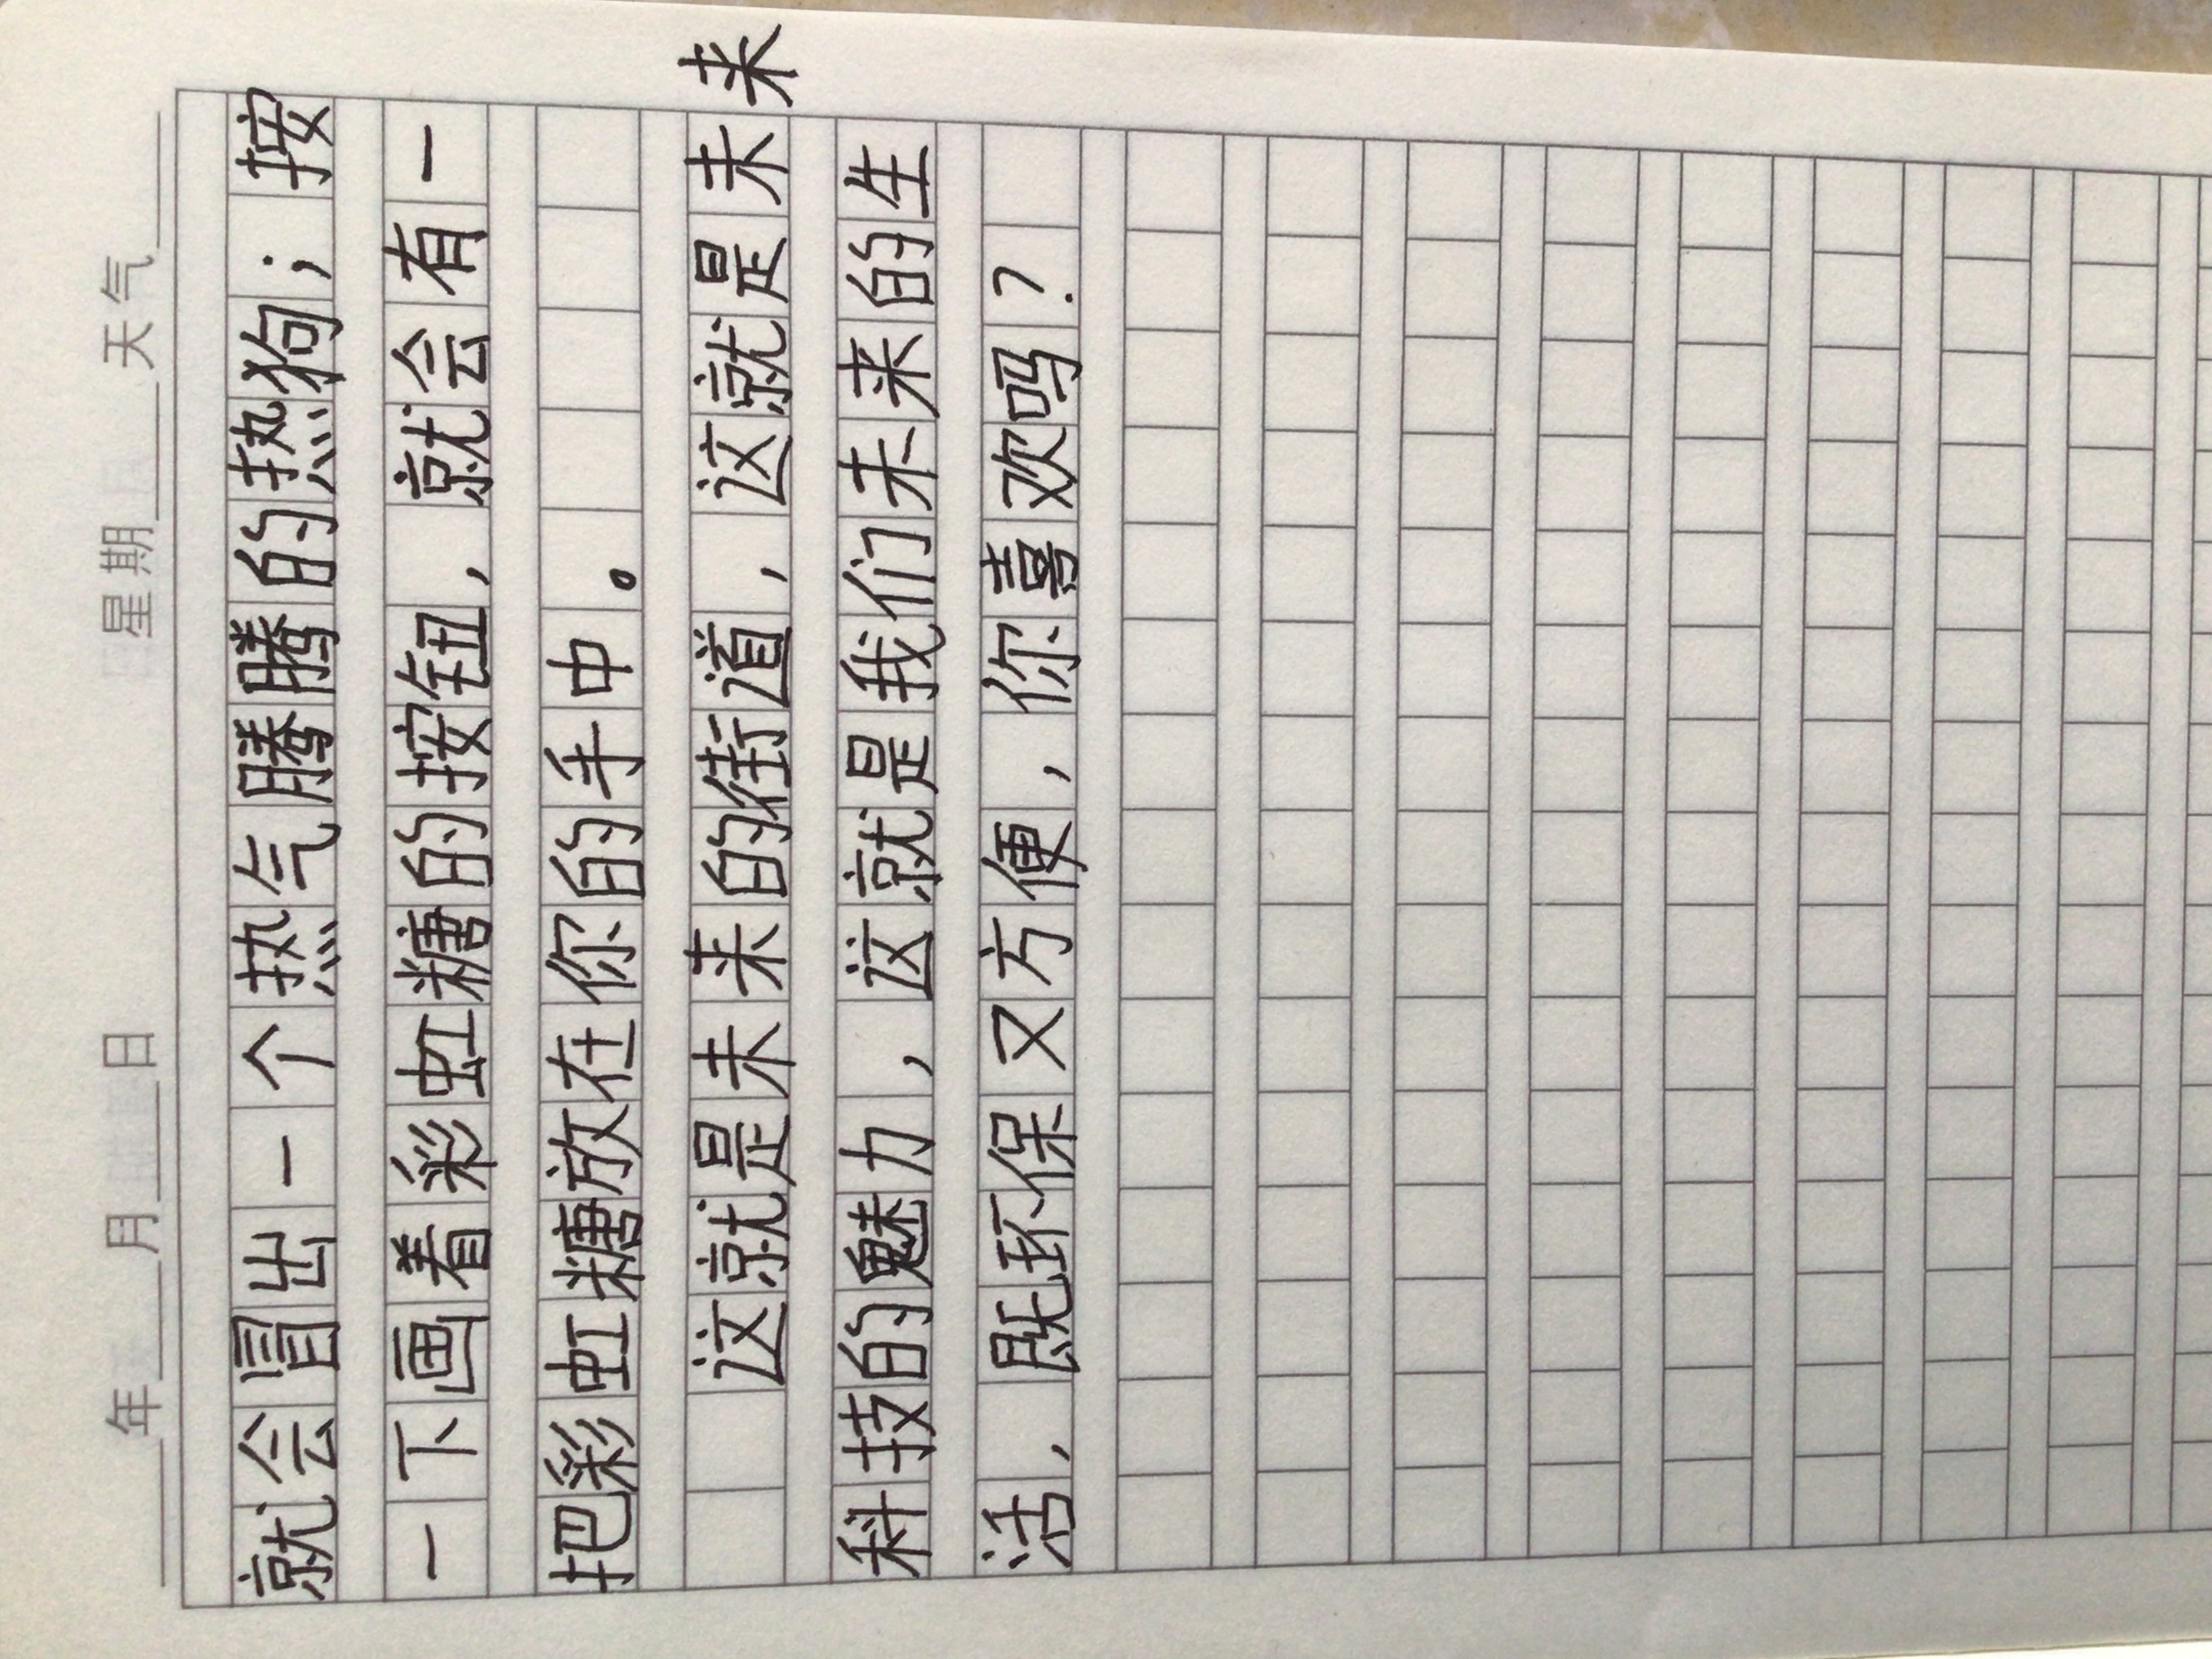 年 月 日 星期 天气
就会冒出一个热气腾腾的热狗；按
一下画着彩虹糖的按钮，就会有一
把彩虹糖放在你的手中。
这就是未来的街道，这就是未来
科技的魅力，这就是我们未来的生
活，既环保又方便，你喜欢吗？